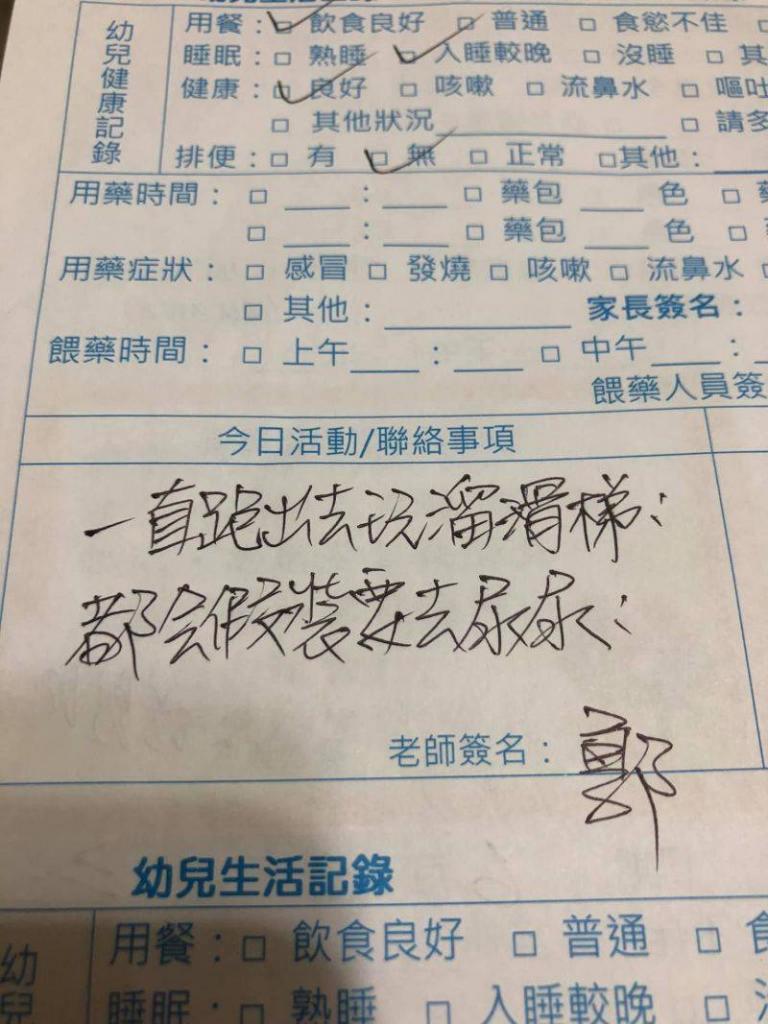 幼兒生活記錄
幼兒健康記錄
用餐：□ 飲食良好 □ 普通 □ 食慾不佳 □
睡眠：□ 熟睡 □ 入睡較晚 □ 沒睡 □ 其
健康：□ 良好 □ 咳嗽 □ 流鼻水 □ 嘔吐
□ 其他狀況________ □ 請多
排便：□ 有 □ 無 □ 正常 □其他：
用藥時間：□ ____：____ □ 藥包 ____ 色 □
□ ____：____ □ 藥包 ____ 色 □
用藥症狀：□ 感冒 □ 發燒 □ 咳嗽 □ 流鼻水 □
□ 其他：________ 家長簽名：
餵藥時間：□ 上午____：____ □ 中午____：
餵藥人員簽
今日活動/聯絡事項
一直跑出去玩溜滑梯：
都會假裝要去尿尿：
老師簽名：郭
幼兒生活記錄
幼兒
用餐：□ 飲食良好 □ 普通 □ 食
睡眠：□ 熟睡 □ 入睡較晚 □